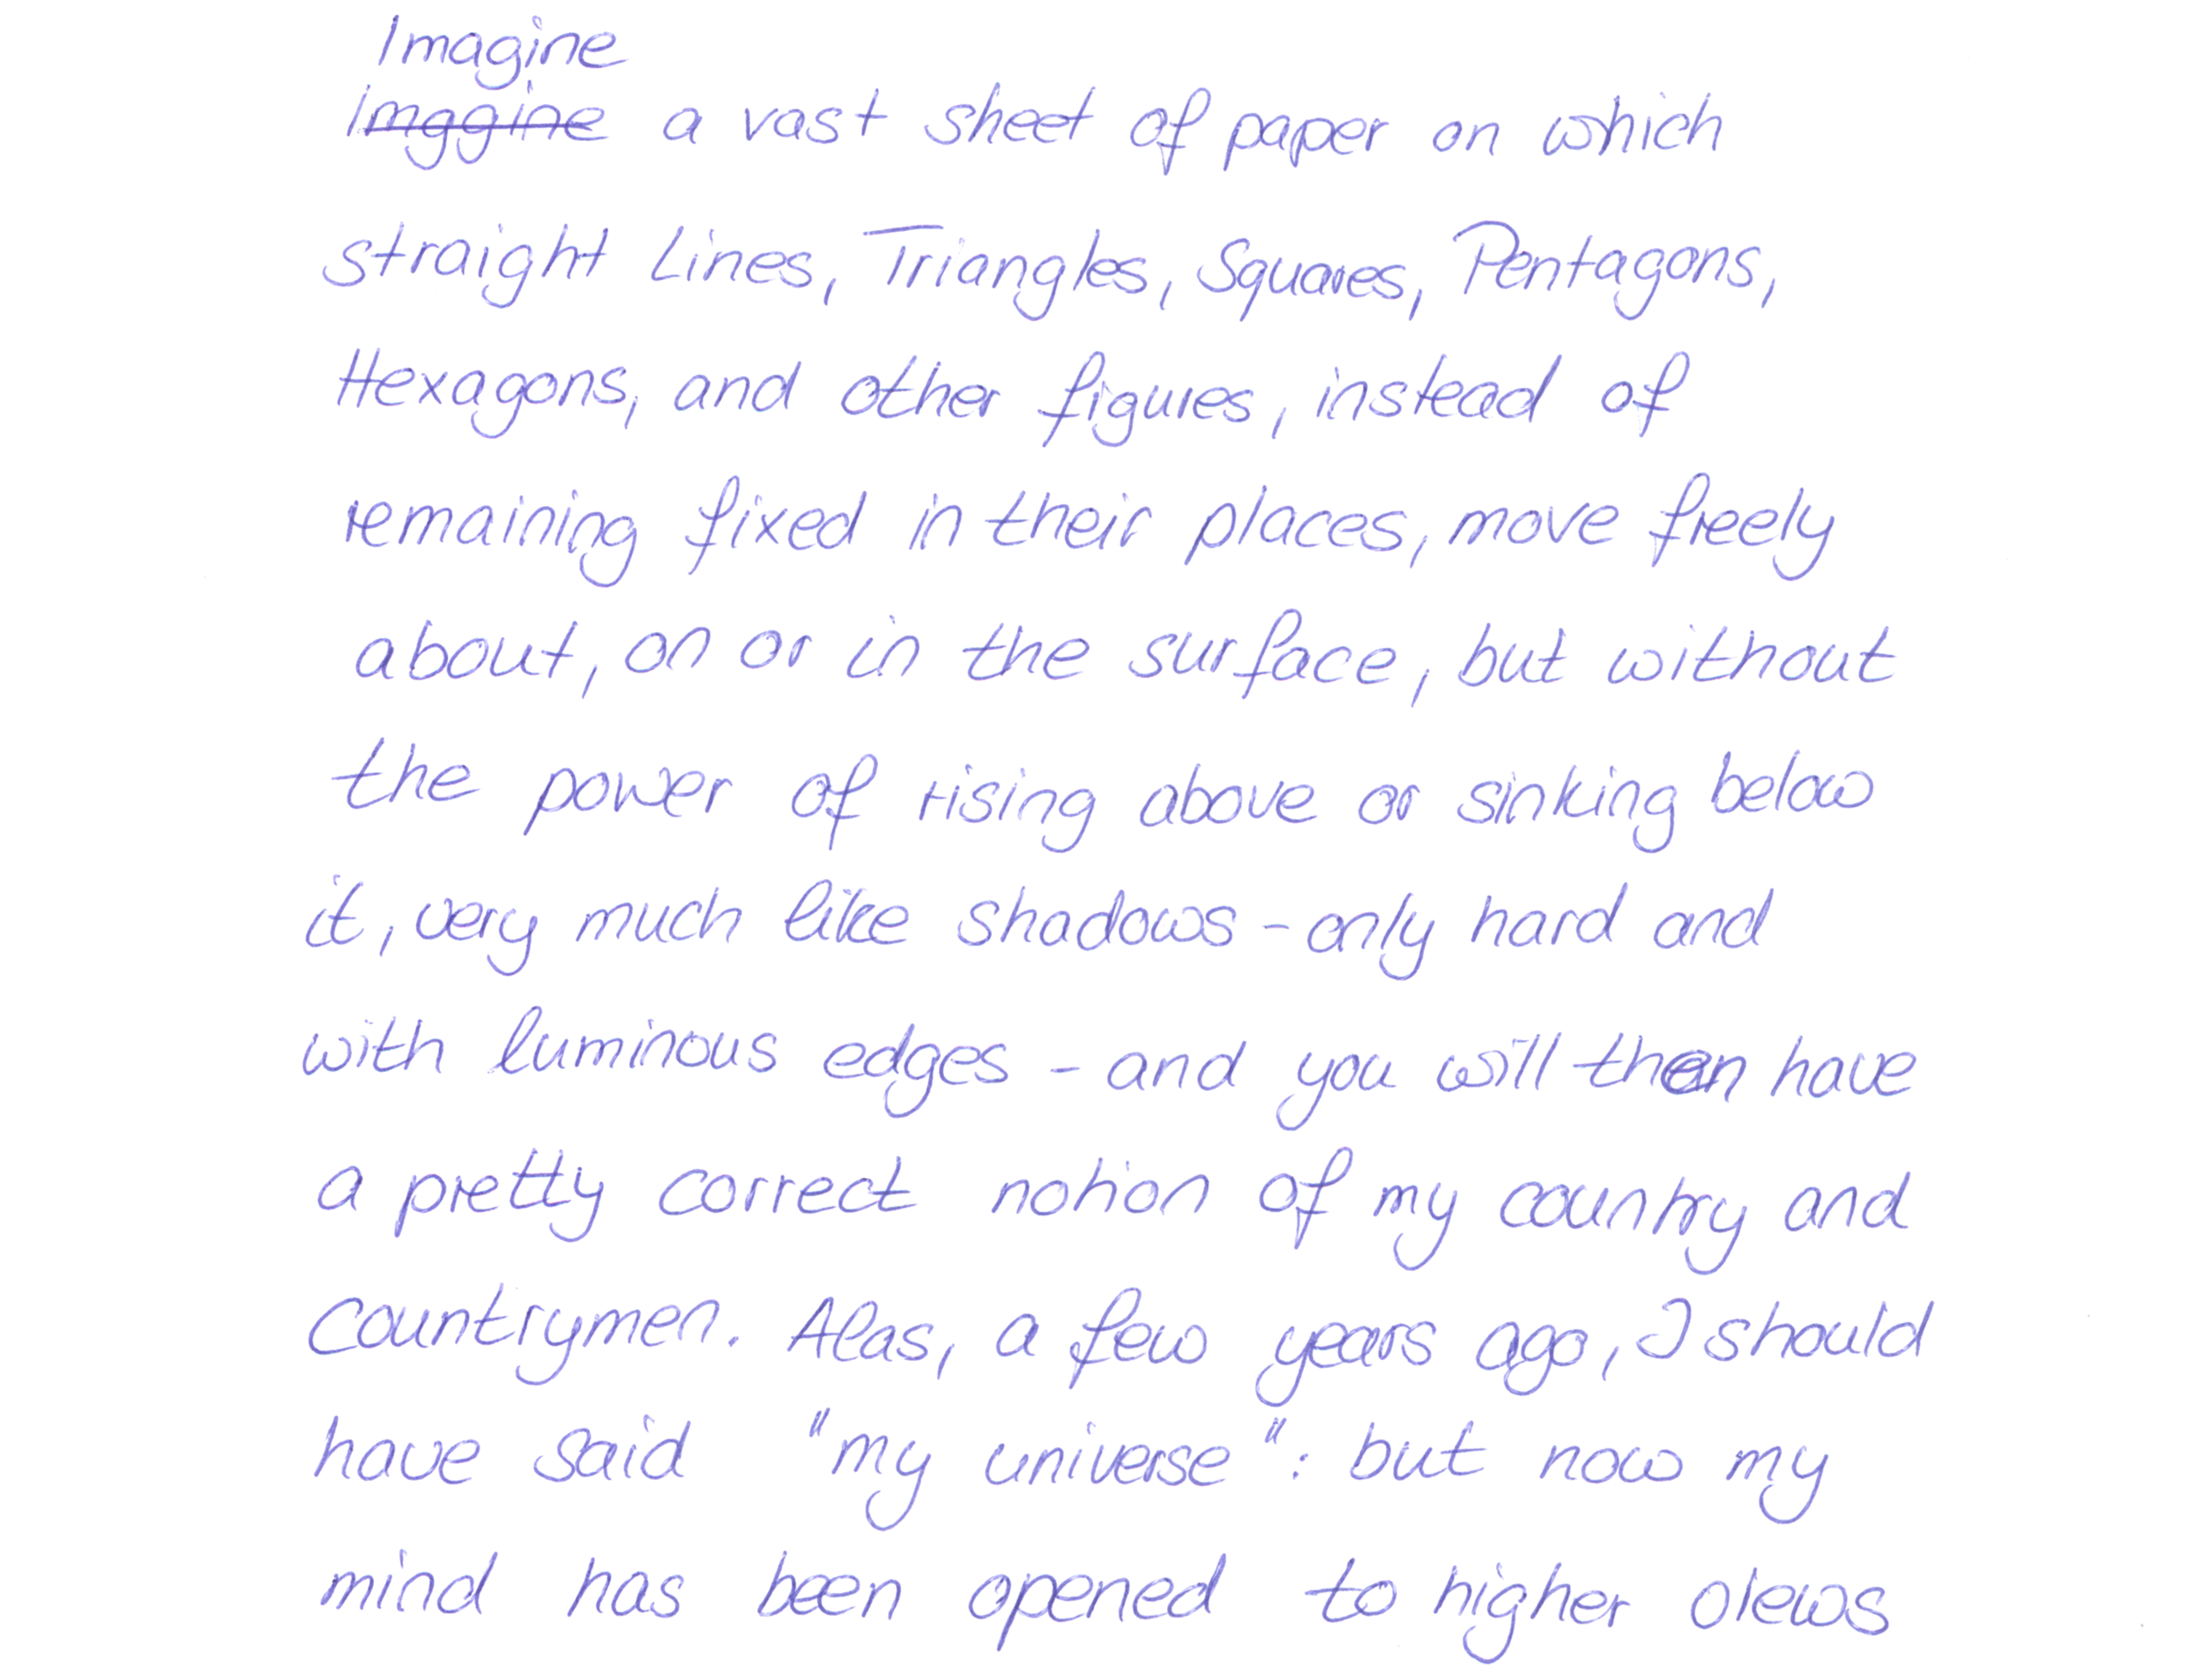 Imagine
imagine a vast sheet of paper on which
straight Lines, Triangles, Squares, Pentagons,
Hexagons, and other figures, instead of
remaining fixed in their places, move freely
about, on or in the surface, but without
the power of rising above or sinking below
it, very much like shadows - only hard and
with luminous edges - and you will then have
a pretty correct notion of my country and
countrymen. Alas, a few years ago, I should
have said "my universe": but now my
mind has been opened to higher